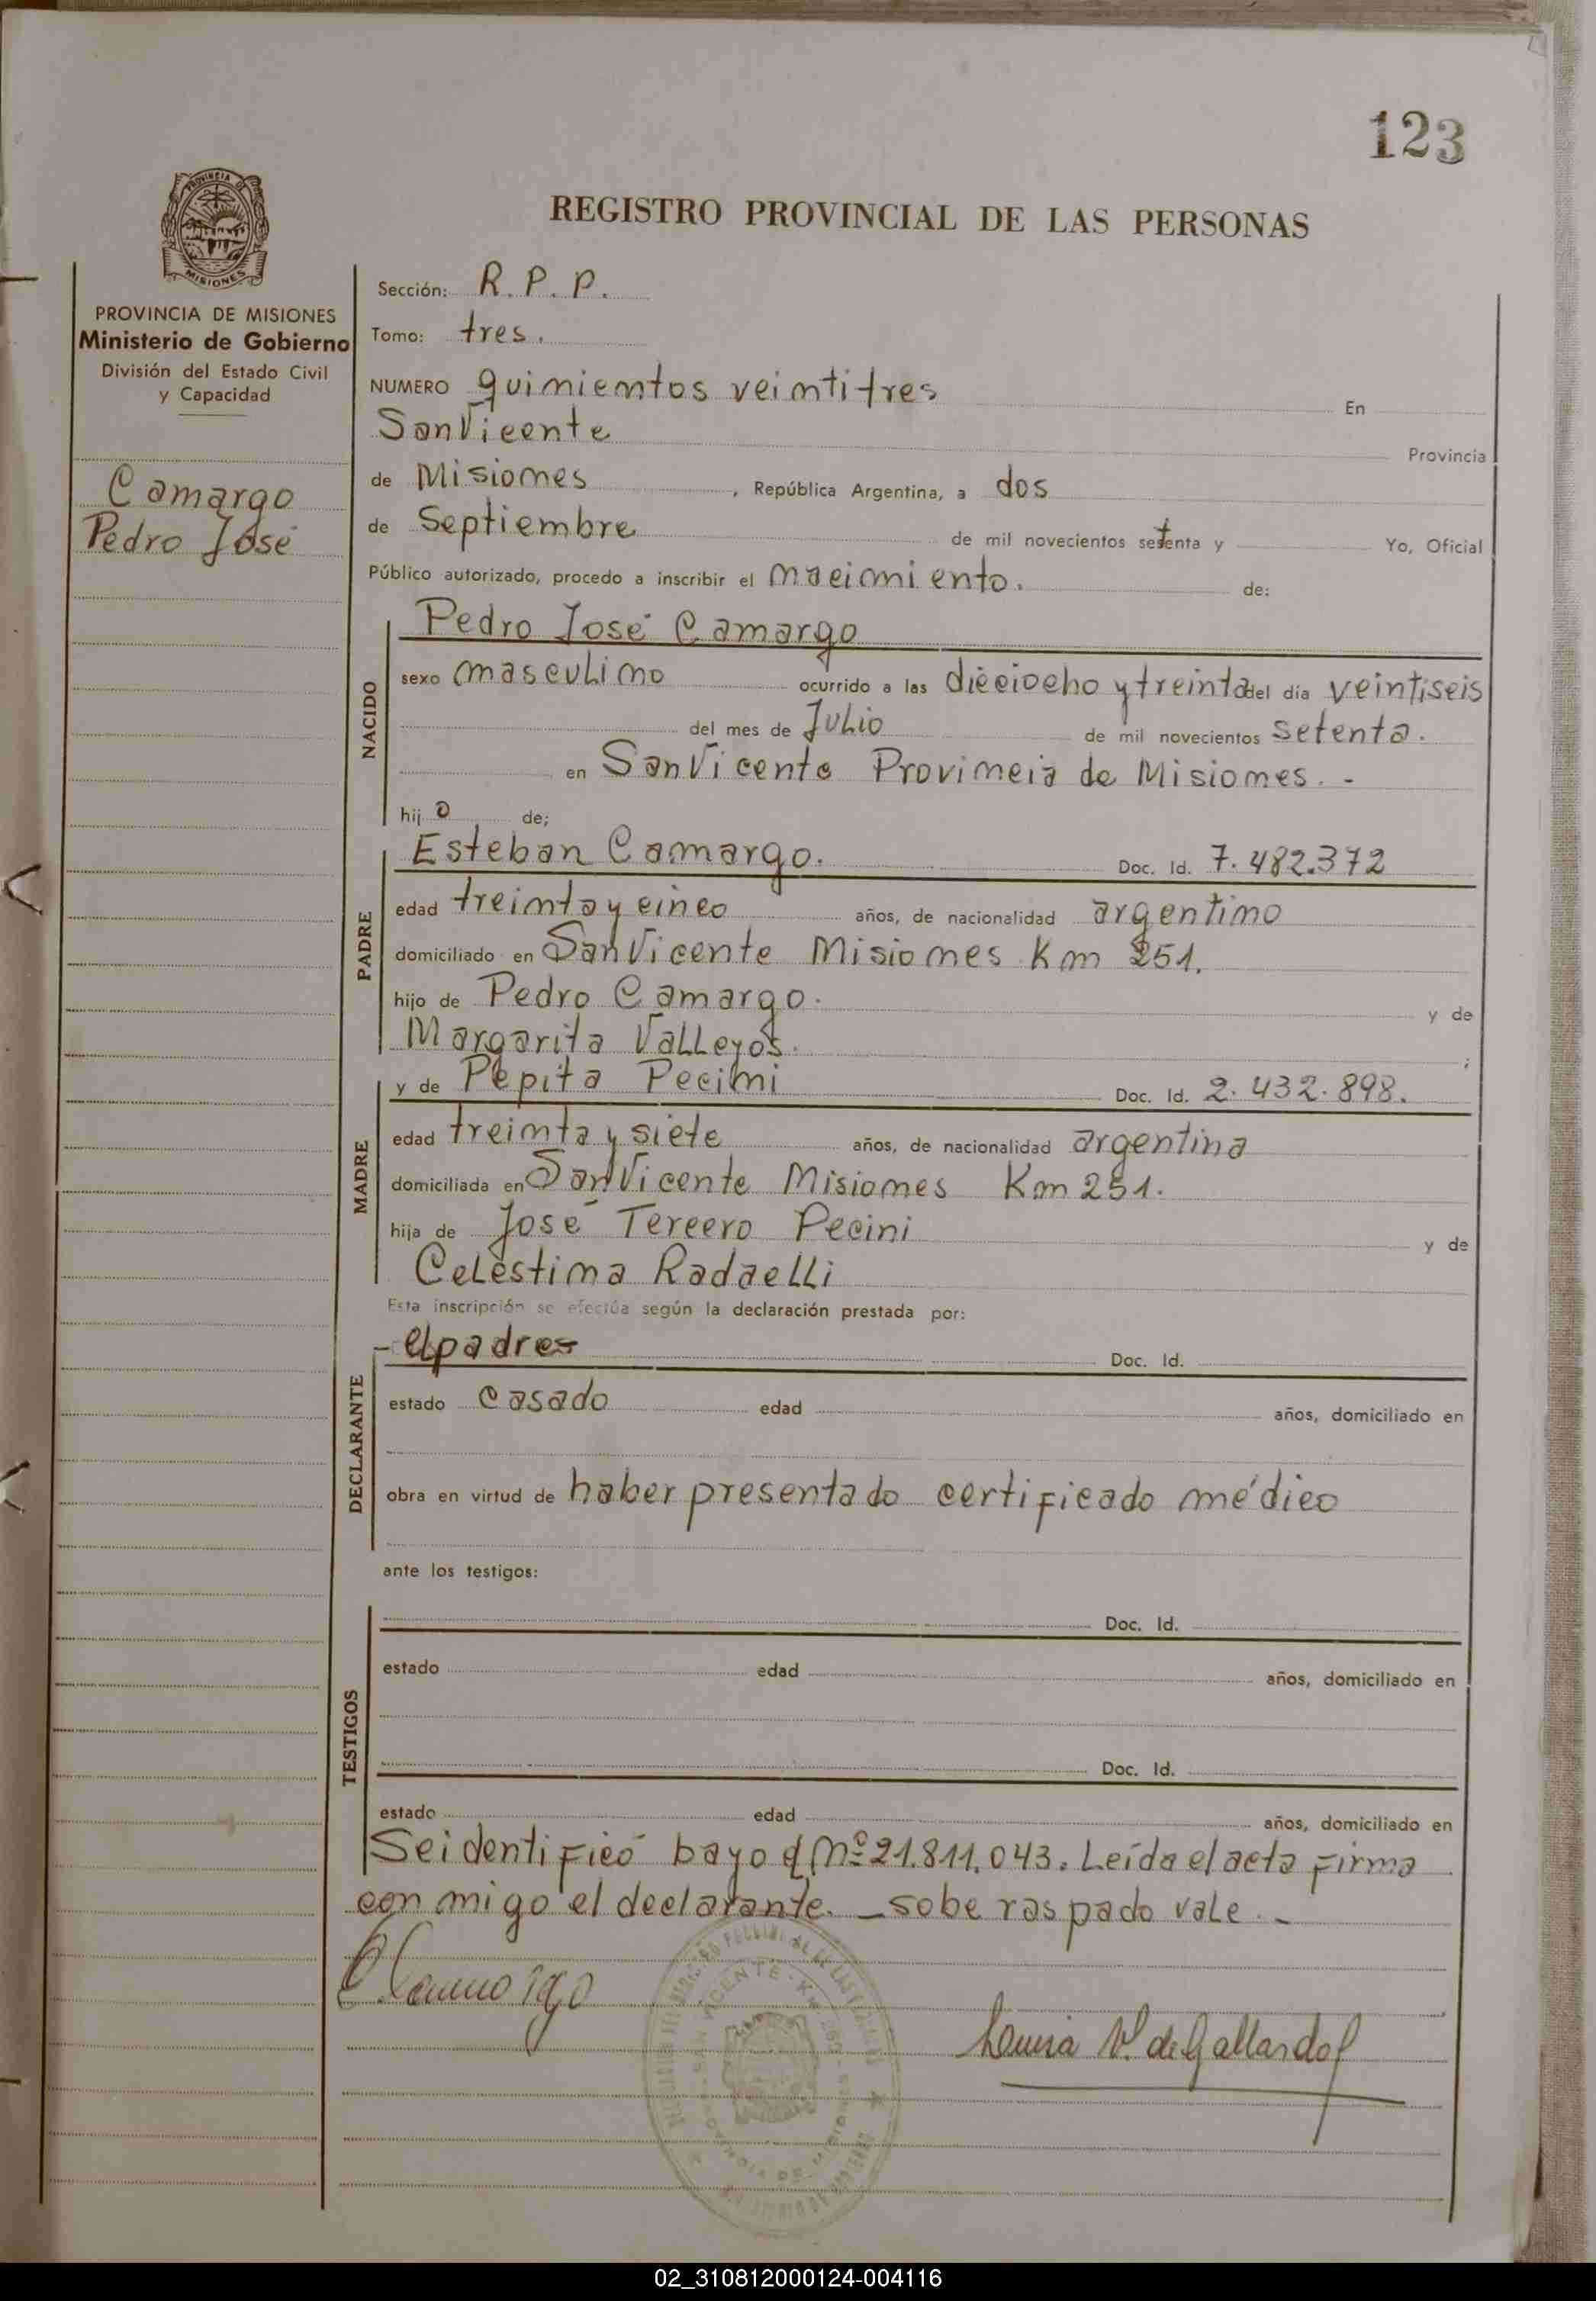 123
REGISTRO PROVINCIAL DE LAS PERSONAS
PROVINCIA DE MISIONES
Ministerio de Gobierno
División del Estado Civil
y Capacidad
Camargo
Pedro José
Sección: R. P. P.
Tomo: tres.
NUMERO quinientos veintitres En
San Vicente Provincia
de Misiones , República Argentina, a dos
de Septiembre de mil novecientos setenta y Yo, Oficial
Público autorizado, procedo a inscribir el nacimiento. de:
NACIDO
Pedro José Camargo
sexo masculino ocurrido a las dieciocho y treinta del día veintiseis
del mes de Julio de mil novecientos setenta.
en San Vicente Provincia de Misiones. -
hij o de;
PADRE
Esteban Camargo. Doc. Id. 7.482.372
edad treinta y cinco años, de nacionalidad argentino
domiciliado en San Vicente Misiones Km 251.
hijo de Pedro Camargo. y de
Margarita Valleyos. ;
MADRE
y de Pepita Pecini Doc. Id. 2.432.898.
edad treinta y siete años, de nacionalidad argentina
domiciliada en San Vicente Misiones Km 251.
hija de José Tercero Pecini y de
Celestina Radaelli
Esta inscripción se efectúa según la declaración prestada por:
DECLARANTE
- el padre Doc. Id.
estado casado edad años, domiciliado en
obra en virtud de haber presentado certificado médico
ante los testigos:
TESTIGOS
Doc. Id.
estado edad años, domiciliado en
Doc. Id.
estado edad años, domiciliado en
Se identificó bayo el Nº 21.811.043. Leída el acta firma
con migo el declarante. - sobe raspado vale. -
E Camargo
V. de Gallardo
02_310812000124-004116